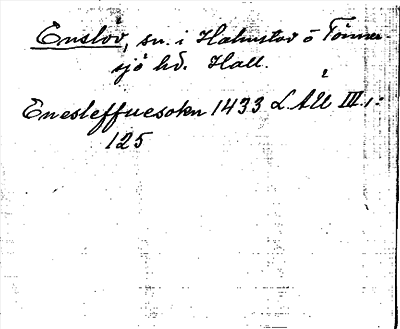 Enslöv, sn. i Halmstad o Tönner
sjö hd. Hall.
Enesleffuesokn 1433 LAU III, 1:
125